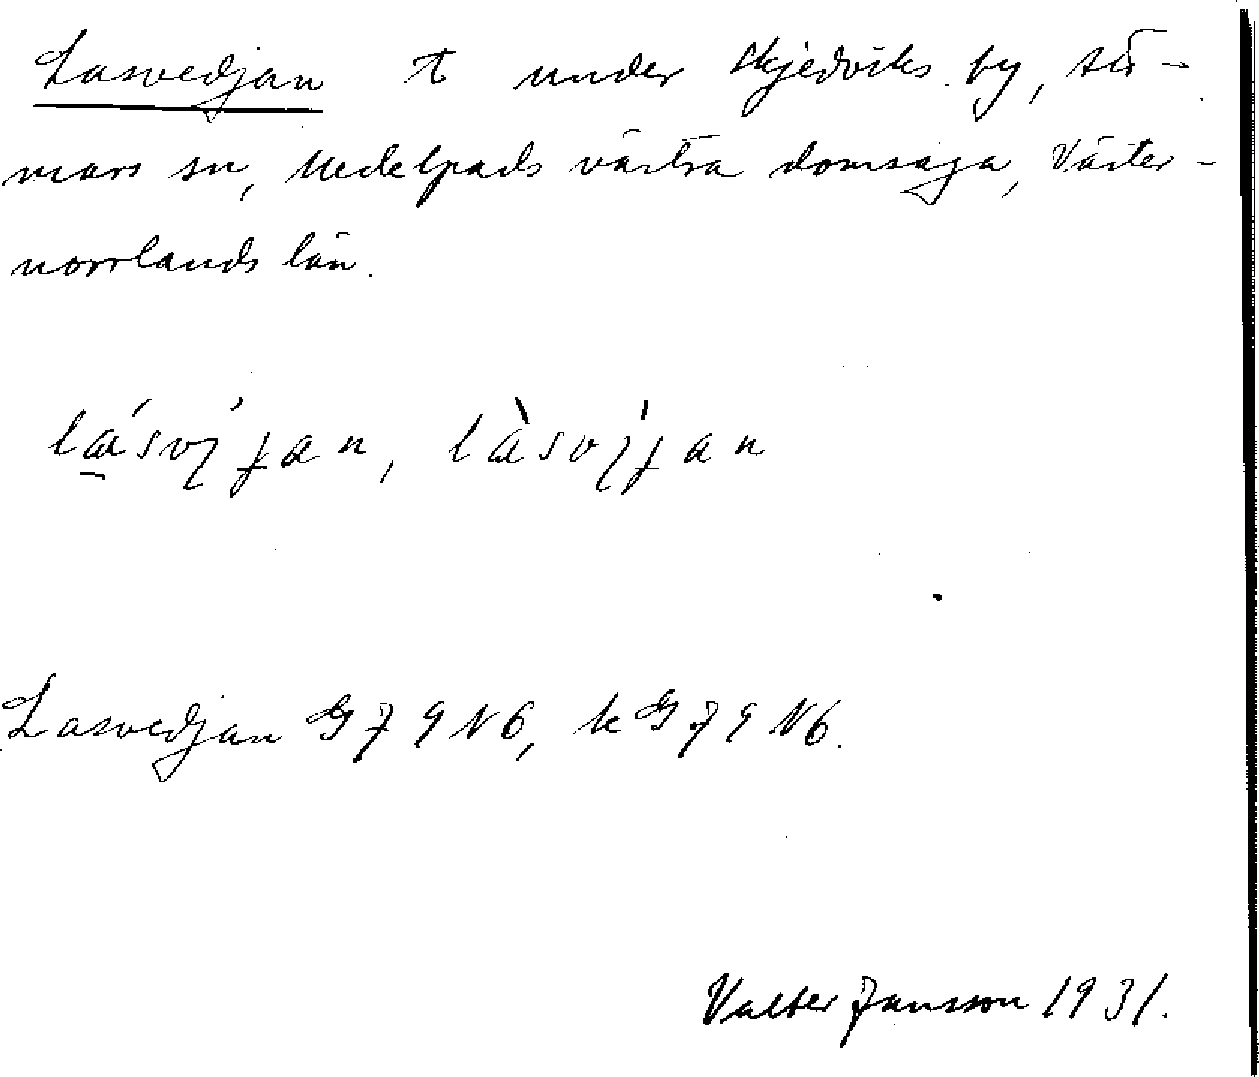 Lasvedjan t under Skjedviks by, Stö-
mars sn, Medelpads västra domsaga, Väster-
norrlands län.
Lasvedjan GJ 9 N6, kGJ9 N6.
Valter Jansson 1931.